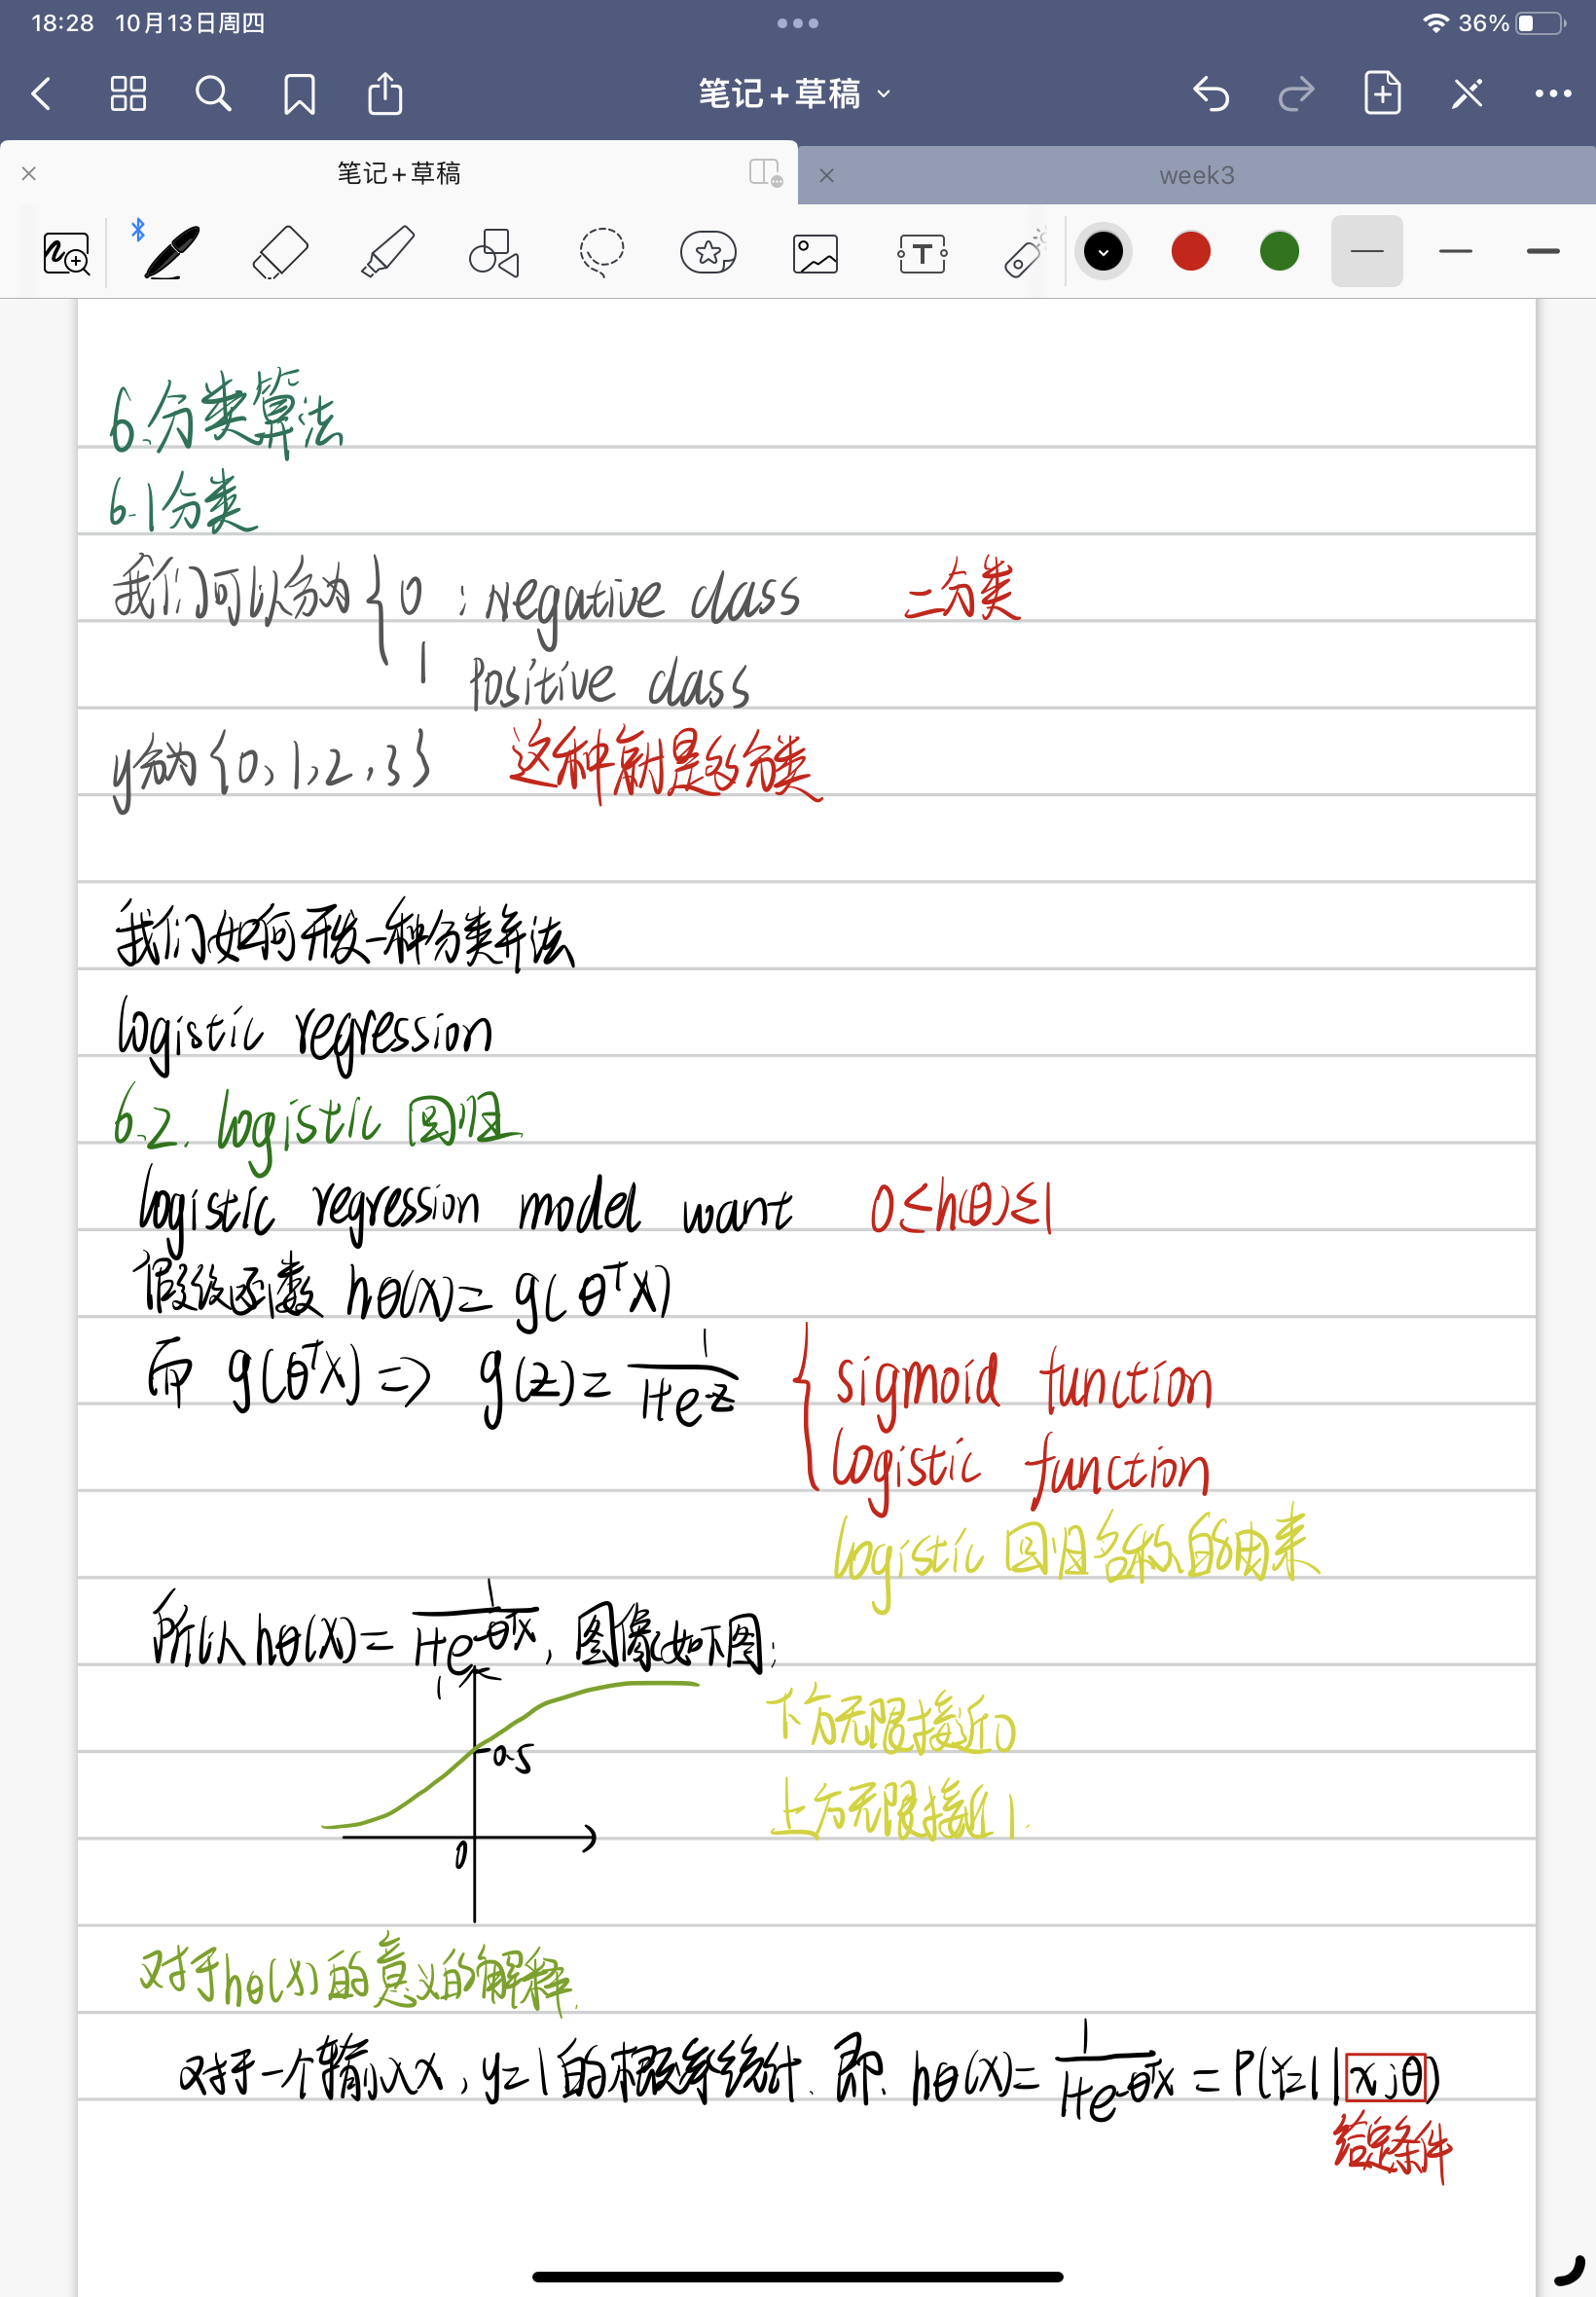 18:28 10月13日周四 36%
笔记+草稿
笔记+草稿
week3
6.分类算法
6.1分类
我们可以分为{0 : negative class 二分类
1 positive class
y分为{0,1,2,3} 这种就是多分类
我们如何开发一种分类算法
logistic regression
6.2. logistic 回归
logistic regression model want 0≤h(θ)≤1
假设函数 hθ(x)= g(θᵀX)
而 g(θᵀX) => g(z)= 1/(1+e^-z) { sigmoid function
logistic function
logistic 回归名称的由来
所以 hθ(x)= 1/(1+e^-θᵀx), 图像如下图:
1
0.5
0
下方无限接近0
上方无限接近1.
对于hθ(x)的意义的解释.
对于一个输入x,y=1的概率统计. 即. hθ(x)= 1/(1+e^-θᵀx) = P(Y=1|x;θ)
给定条件